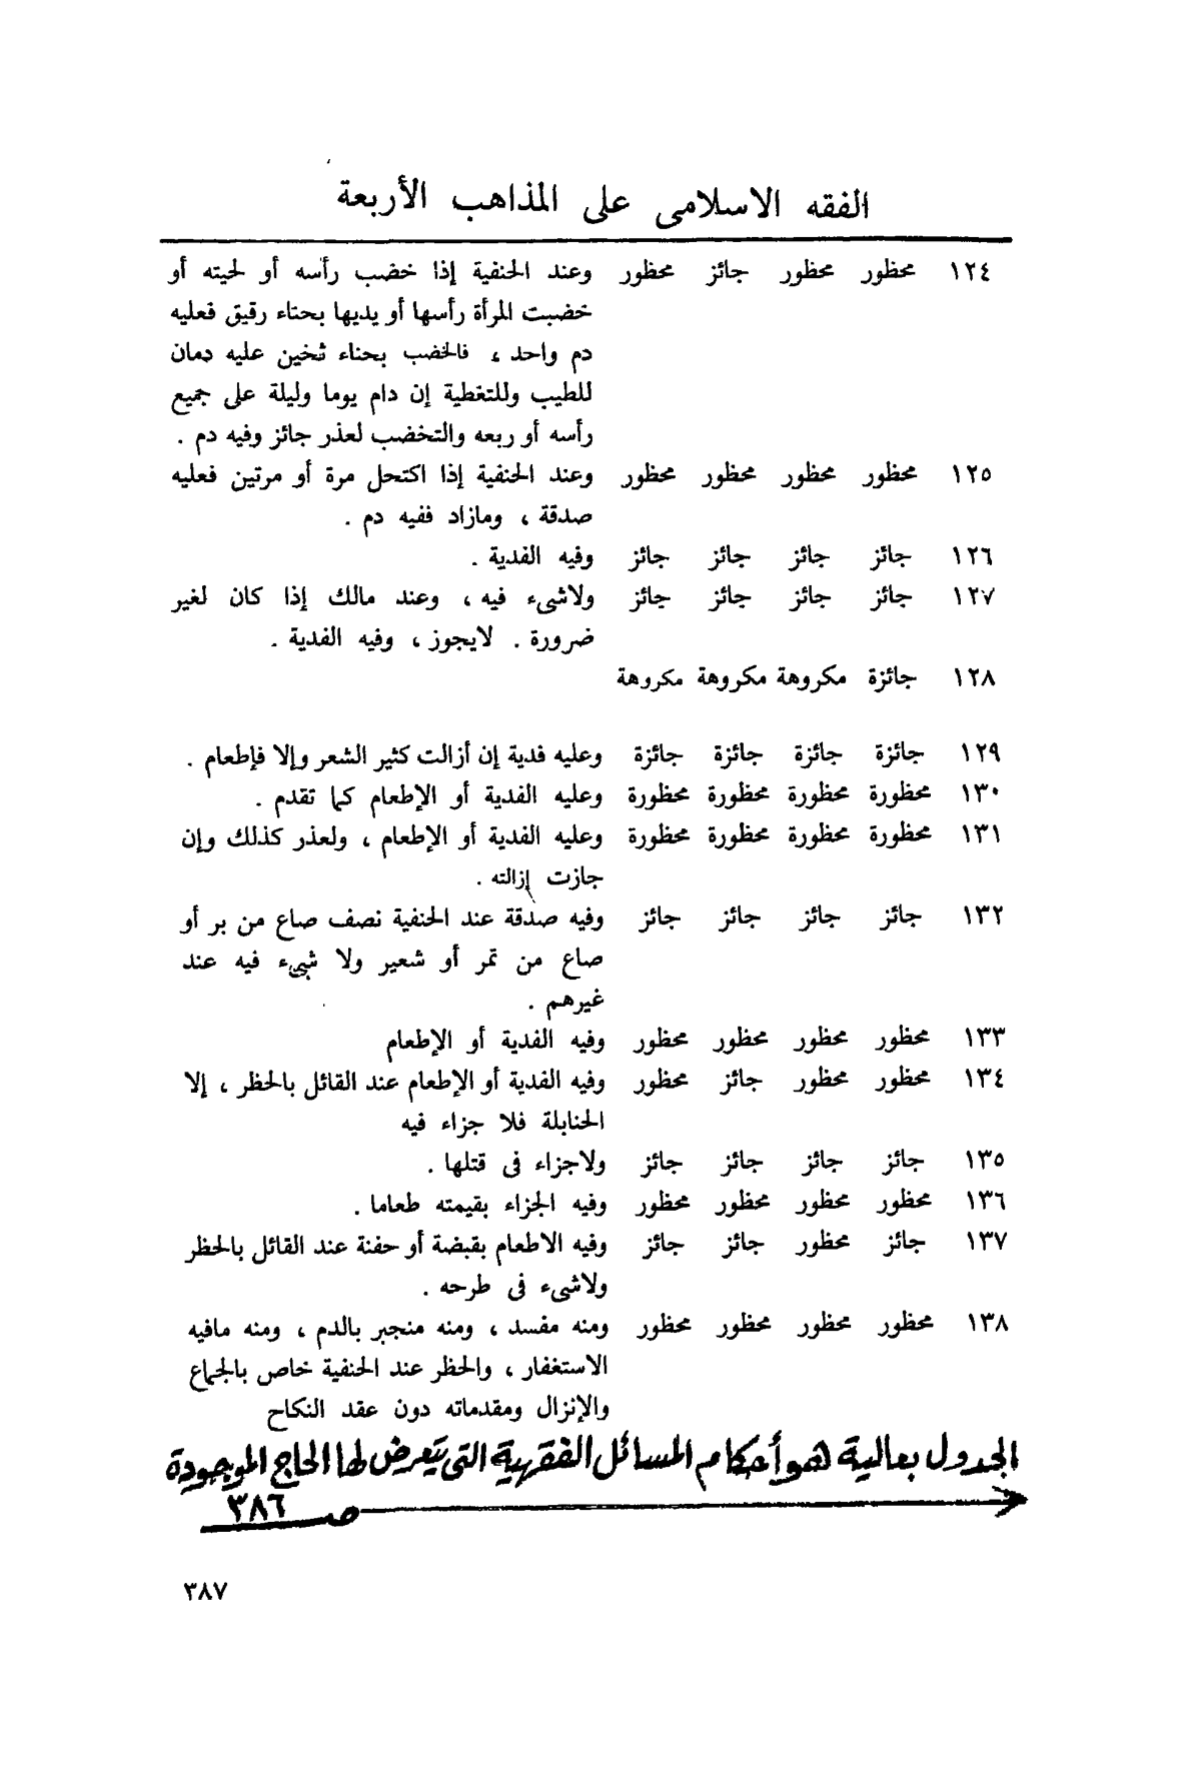 الفقه الاسلامى على المذاهب الأربعة
١٢٤ محظور محظور جائز محظور وعند الحنفية إذا خضب رأسه أو لحيته أو
خضبت المرأة رأسها أو يديها بحناء رقيق فعليه
دم واحد ، فالخضب بحناء ثخين عليه دمان
للطيب وللتغطية إن دام يوما وليلة على جميع
رأسه أو ربعه والتخضب لعذر جائز وفيه دم .
١٢٥ محظور محظور محظور محظور وعند الحنفية إذا اكتحل مرة أو مرتين فعليه
صدقة ، ومازاد ففيه دم .
١٢٦ جائز جائز جائز جائز وفيه الفدية .
١٢٧ جائز جائز جائز جائز ولاشىء فيه ، وعند مالك إذا كان لغير
ضرورة . لايجوز ، وفيه الفدية .
١٢٨ جائزة مكروهة مكروهة مكروهة
١٢٩ جائزة جائزة جائزة جائزة وعليه فدية إن أزالت كثير الشعر وإلا فإطعام .
١٣٠ محظورة محظورة محظورة محظورة وعليه الفدية أو الإطعام كما تقدم .
١٣١ محظورة محظورة محظورة محظورة وعليه الفدية أو الإطعام ، ولعذر كذلك وإن
جازت إزالته .
١٣٢ جائز جائز جائز جائز وفيه صدقة عند الحنفية نصف صاع من بر أو
صاع من تمر أو شعير ولا شىء فيه عند
غيرهم .
١٣٣ محظور محظور محظور محظور وفيه الفدية أو الإطعام
١٣٤ محظور محظور جائز محظور وفيه الفدية أو الإطعام عند القائل بالحظر ، إلا
الحنابلة فلا جزاء فيه
١٣٥ جائز جائز جائز جائز ولاجزاء فى قتلها .
١٣٦ محظور محظور محظور محظور وفيه الجزاء بقيمته طعاما .
١٣٧ جائز محظور جائز جائز وفيه الاطعام بقبضة أو حفنة عند القائل بالحظر
ولاشىء فى طرحه .
١٣٨ محظور محظور محظور محظور ومنه مفسد ، ومنه منجبر بالدم ، ومنه مافيه
الاستغفار ، والحظر عند الحنفية خاص بالجماع
والإنزال ومقدماته دون عقد النكاح
الجدول بعالية هو أحكام المسائل الفقهية التى يتعرض لها الحاج الموجودة
ص ٣٨٦
٣٨٧